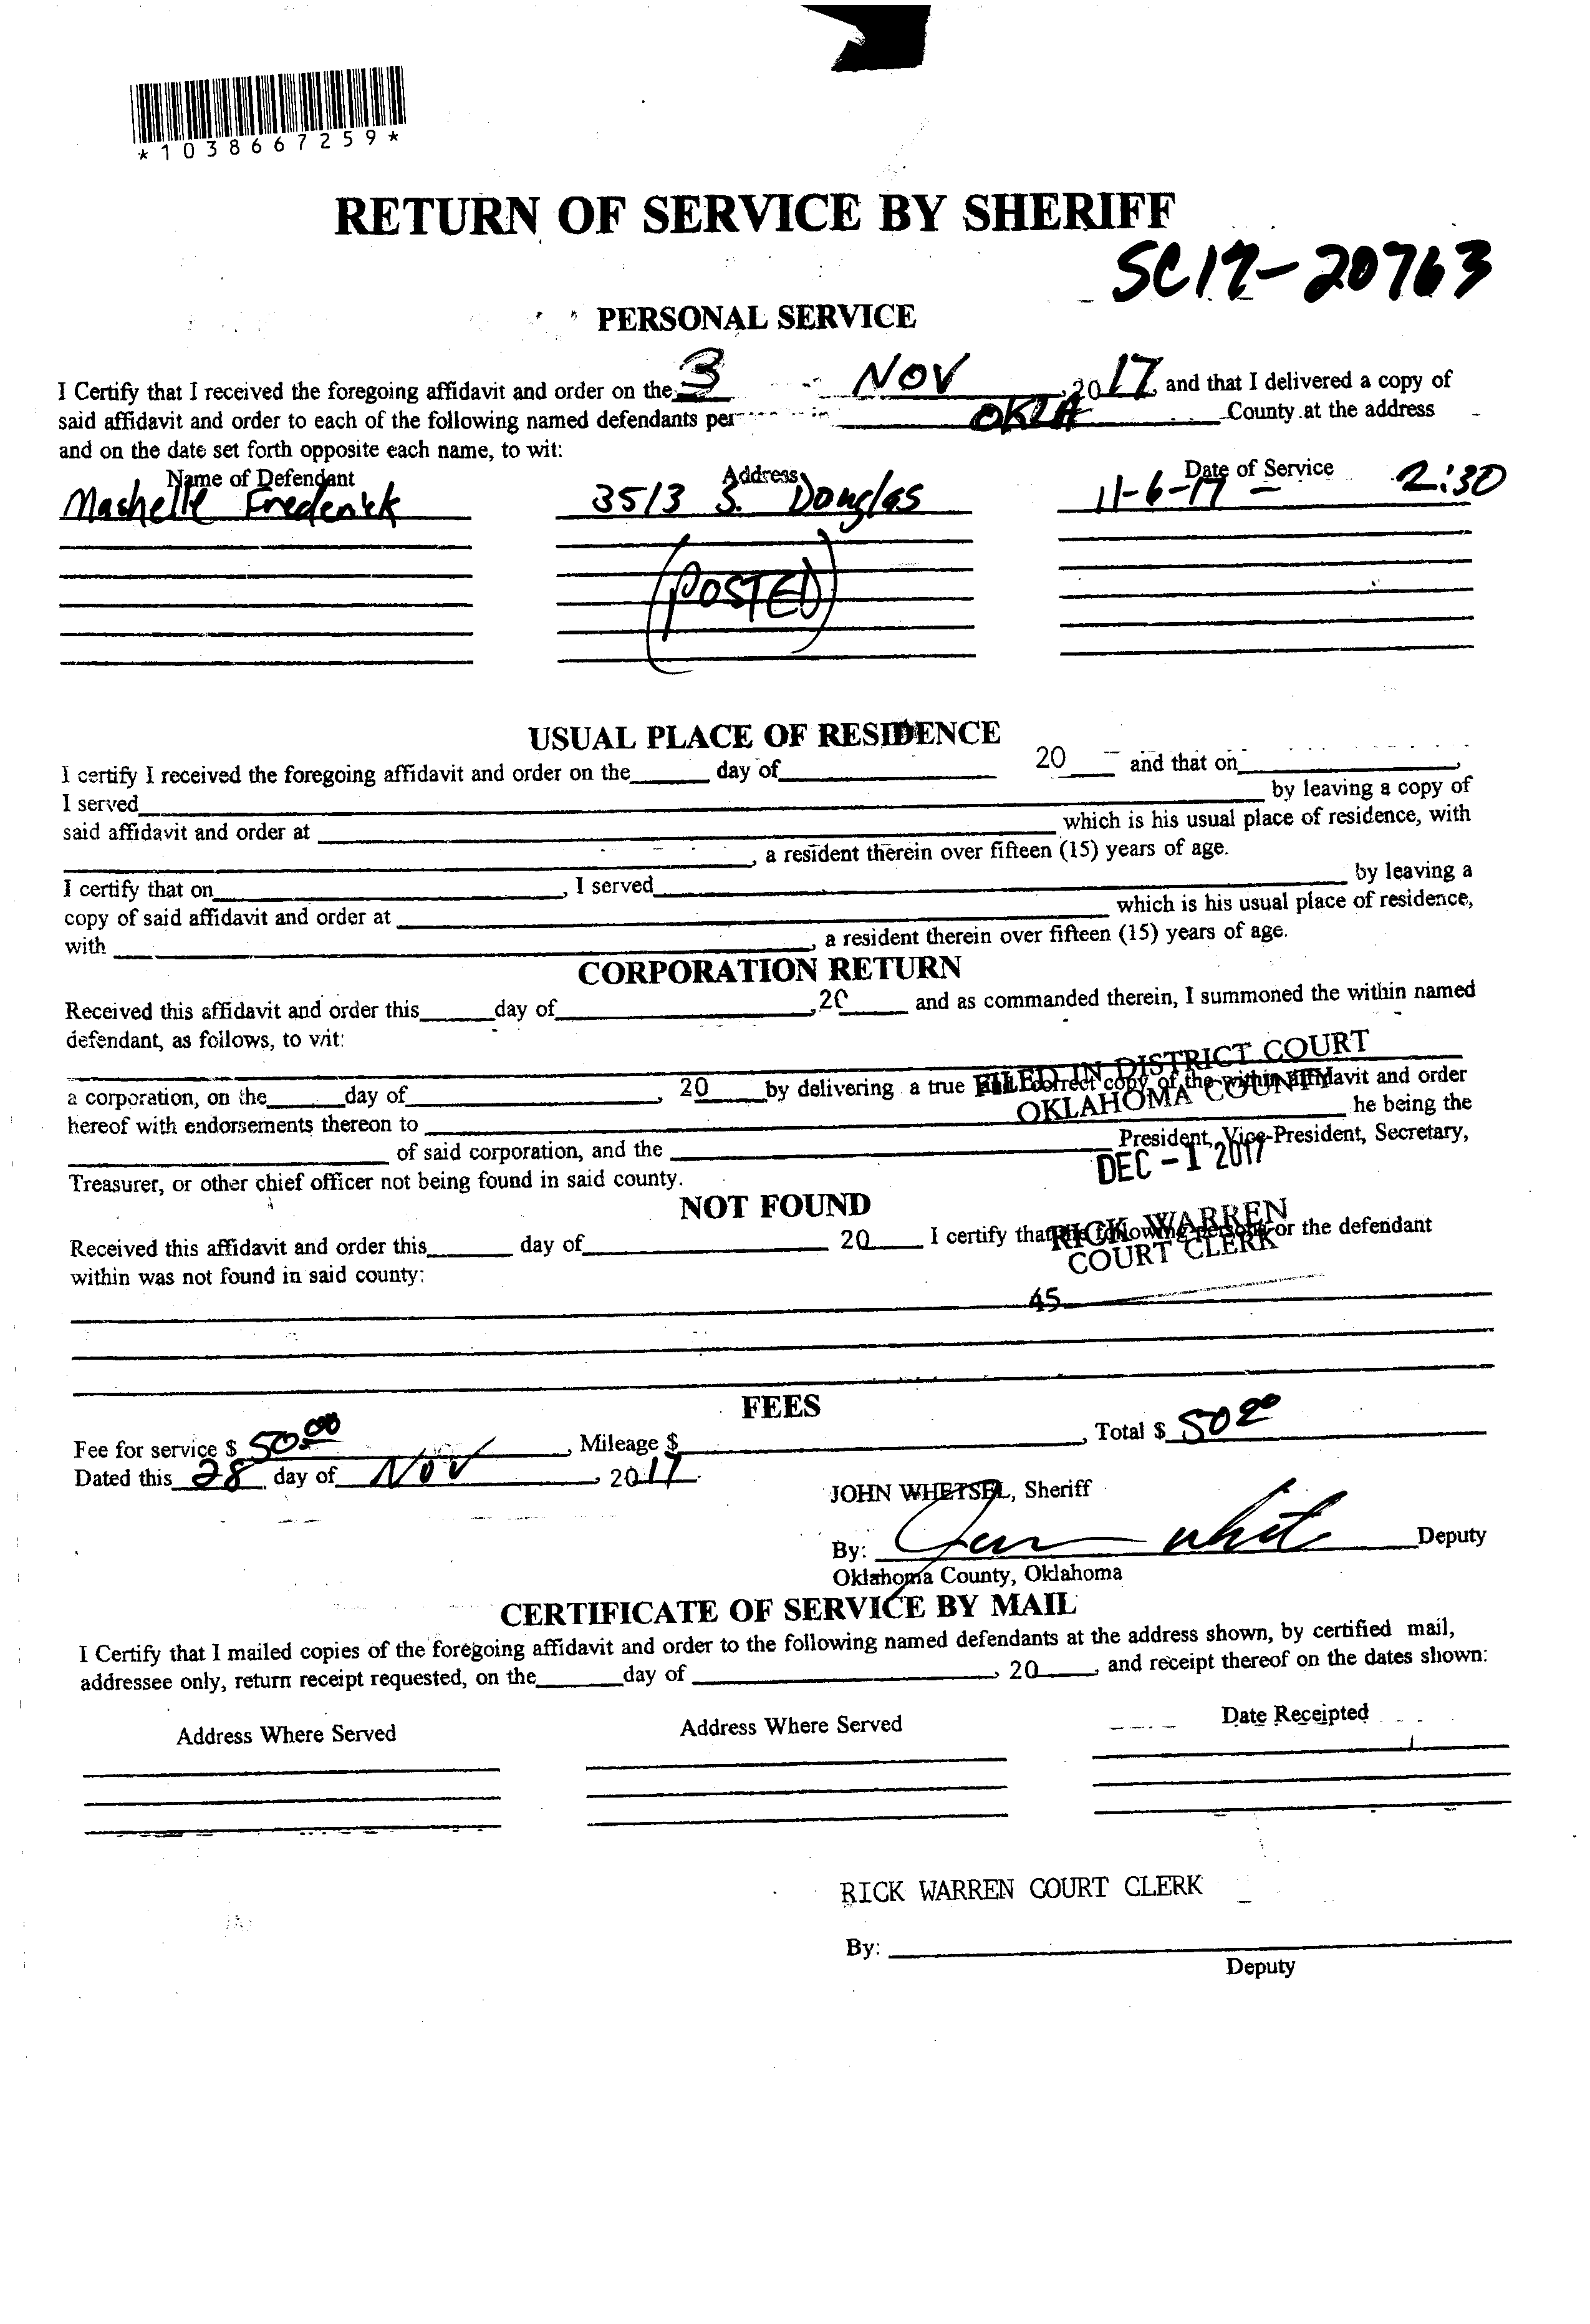 *1038667259*
RETURN OF SERVICE BY SHERIFF
SC17-20763
PERSONAL SERVICE
I Certify that I received the foregoing affidavit and order on the 3 NOV , 2017, and that I delivered a copy of
said affidavit and order to each of the following named defendants per in OKLA County at the address
and on the date set forth opposite each name, to wit:
Name of Defendant Address Date of Service
Mashelle Frederick 3513 S. Douglas 11-6-17 - 2:30
(POSTED)
USUAL PLACE OF RESIDENCE
I certify I received the foregoing affidavit and order on the day of 20 and that on ,
I served by leaving a copy of
said affidavit and order at which is his usual place of residence, with
, a resident therein over fifteen (15) years of age.
I certify that on , I served by leaving a
copy of said affidavit and order at which is his usual place of residence,
with , a resident therein over fifteen (15) years of age.
CORPORATION RETURN
Received this affidavit and order this day of , 20 and as commanded therein, I summoned the within named
defendant, as follows, to wit:
FILED IN DISTRICT COURT
a corporation, on the day of , 20 by delivering a true and correct copy of the within affidavit and order
OKLAHOMA COUNTY
hereof with endorsements thereon to he being the
of said corporation, and the President, Vice-President, Secretary,
DEC - 1 2017
Treasurer, or other chief officer not being found in said county.
NOT FOUND
RICK WARREN
Received this affidavit and order this day of 20 I certify that the following persons or the defendant
COURT CLERK
within was not found in said county:
45
FEES
Fee for service $ 50.00 , Mileage $ , Total $ 50.00
Dated this 28 day of NOV , 2017.
JOHN WHETSEL, Sheriff
By: Deputy
Oklahoma County, Oklahoma
CERTIFICATE OF SERVICE BY MAIL
I Certify that I mailed copies of the foregoing affidavit and order to the following named defendants at the address shown, by certified mail,
addressee only, return receipt requested, on the day of , 20 , and receipt thereof on the dates shown:
Address Where Served Address Where Served Date Receipted
RICK WARREN COURT CLERK
By:
Deputy